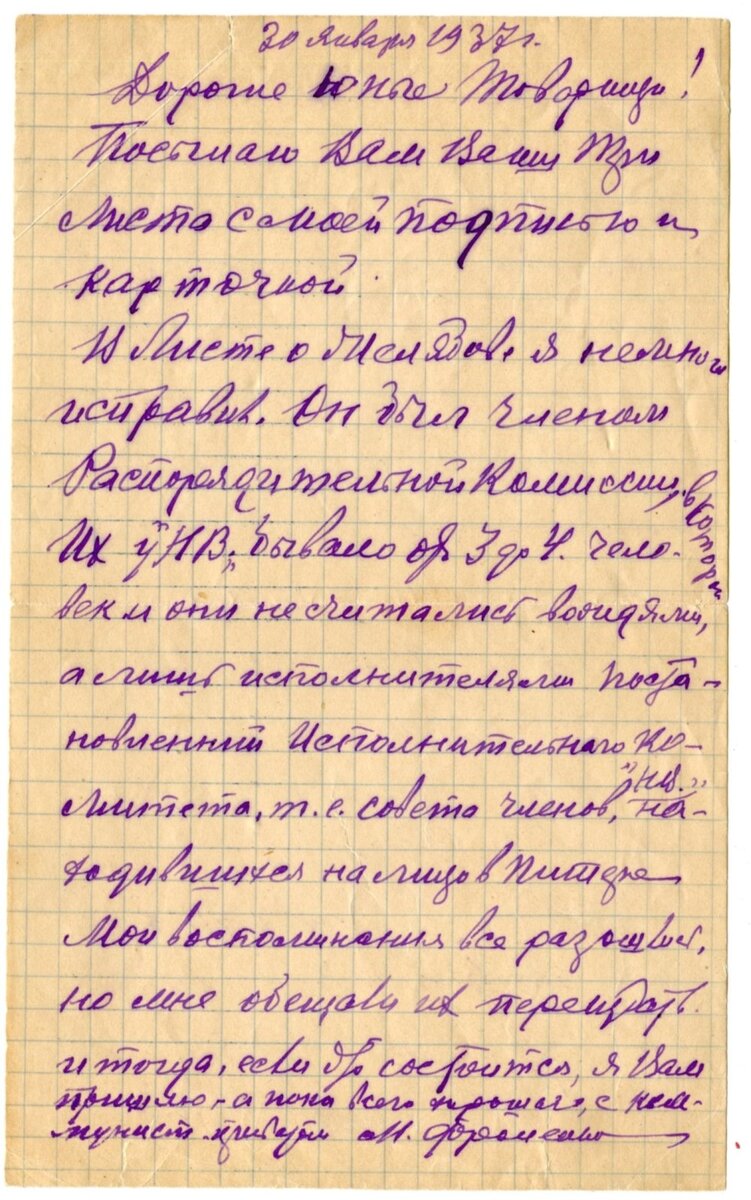 30 января 1937 г.
Дорогие Юные Товарищи!
Посылаю Вам Ваши три
листа с моей подписью и
карточкой.
В Листе о Желябове я немного
исправил. Он был членом
Распорядительной Комиссии, в которой
их у "НВ." бывало от 3 до 4. чело-
век и они не считались вождями,
а лишь исполнителями поста-
новлений Исполнительного Ко-
митета, т.е. совета членов, "НВ." на-
ходившихся на лицо в Питере
Мои воспоминания все разошлись,
но мне обещали их переиздать.
и тогда, если это состоится, я Вам
пришлю, - а пока всего хорошего, с ком-
мунист. приветом М. Фроленко